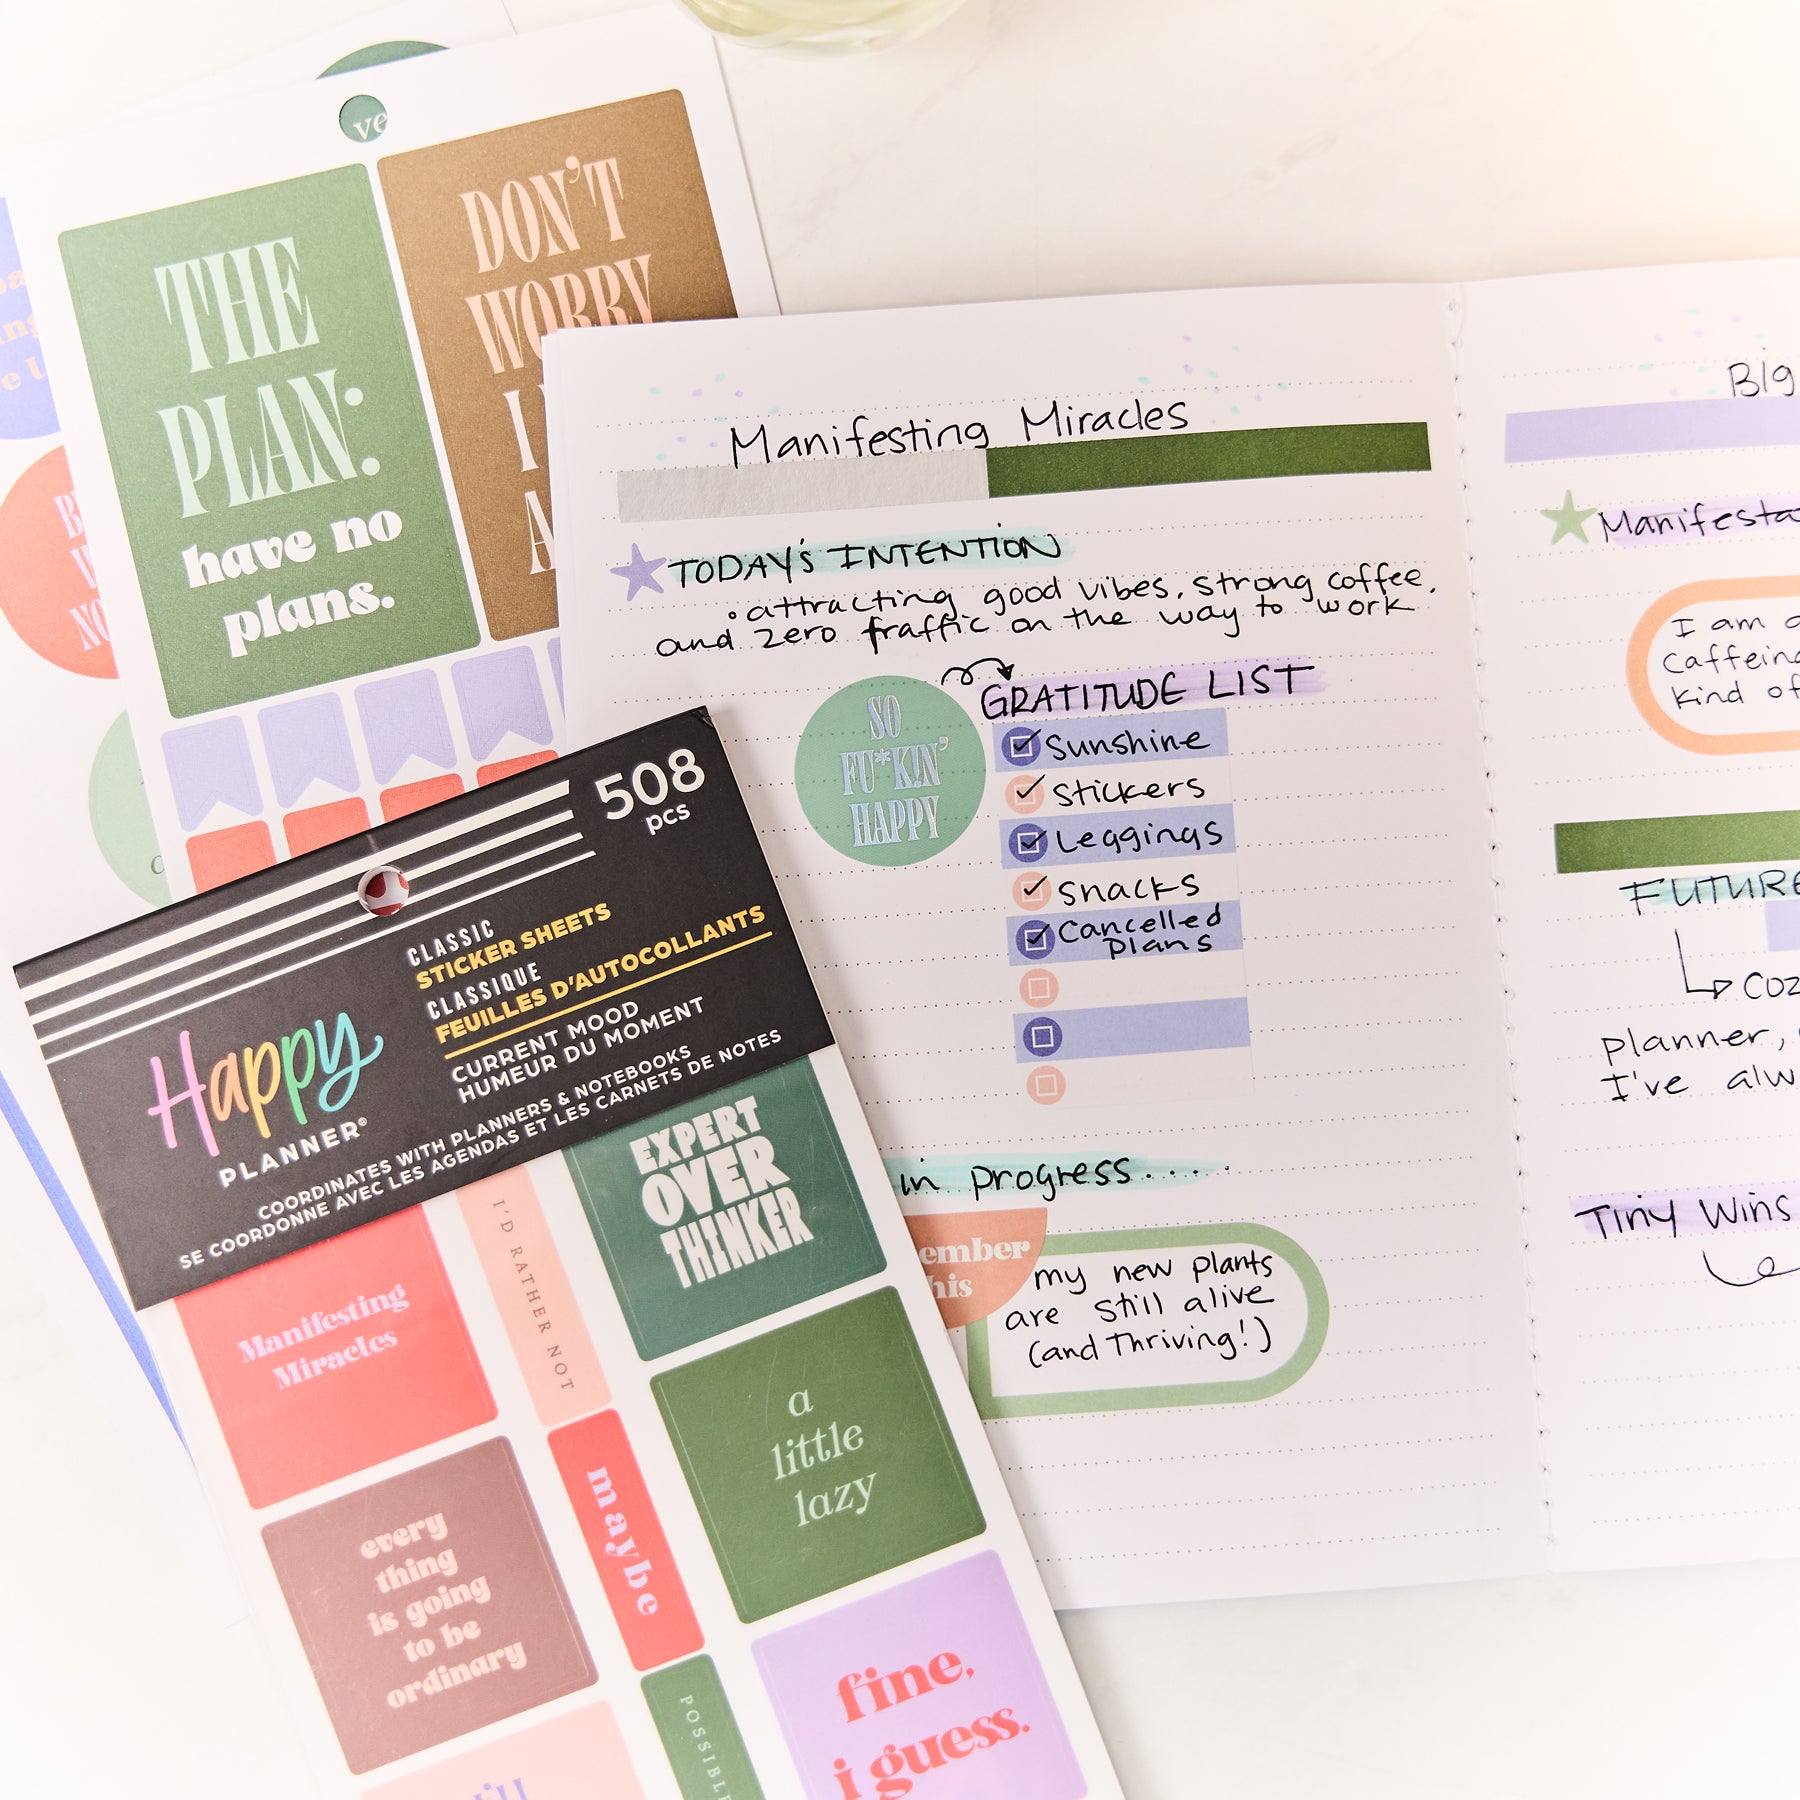 ve
THE
PLAN:
have no
plans.
DON'T
WORRY
I
508
pcs
CLASSIC
STICKER SHEETS
CLASSIQUE
FEUILLES D'AUTOCOLLANTS
CURRENT MOOD
HUMEUR DU MOMENT
Happy
PLANNER®
COORDINATES WITH PLANNERS & NOTEBOOKS
SE COORDONNE AVEC LES AGENDAS ET LES CARNETS DE NOTES
EXPERT
OVER
THINKER
I'D RATHER NOT
Manifesting
Miracles
a
little
lazy
maybe
every
thing
is going
to be
ordinary
fine,
i guess.
Manifesting Miracles
TODAY'S INTENTION
• attracting good vibes, strong coffee,
and zero traffic on the way to work
SO
FU*KIN'
HAPPY
GRATITUDE LIST
Sunshine
Stickers
Leggings
Snacks
Cancelled
plans
in progress.....
my new plants
are still alive
(and Thriving!)
Big
I am
kind of
FUTURE
planner,
I've
Tiny Wins